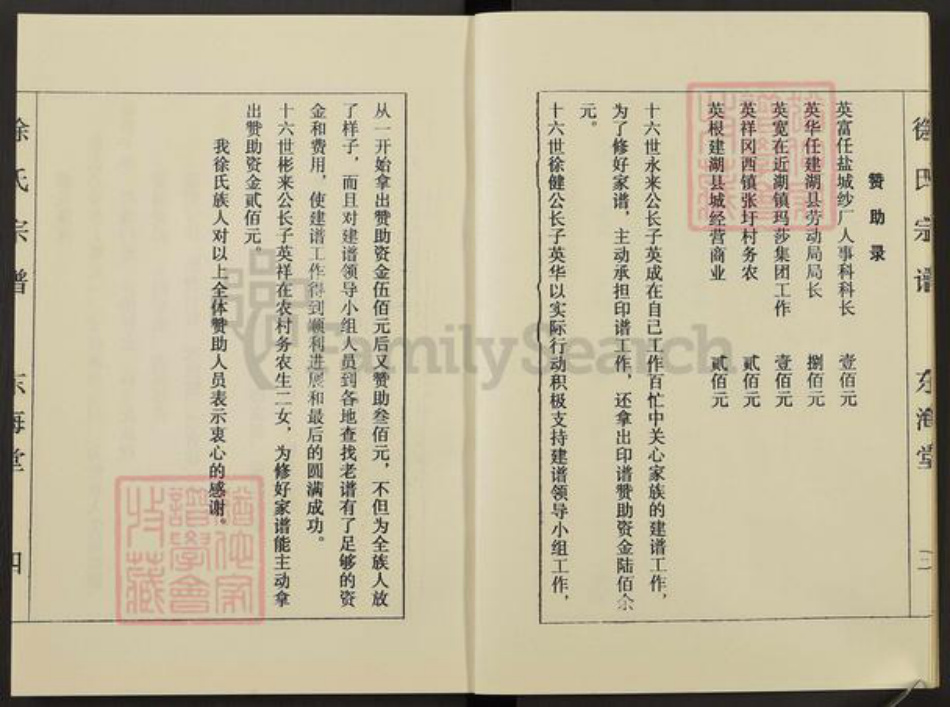 徐氏宗谱 东海堂 三
赞助录
英富任盐城纱厂人事科科长 壹佰元
英华任建湖县劳动局局长 捌佰元
英宽在近湖镇玛莎集团工作 壹佰元
英祥冈西镇张圩村务农 贰佰元
英根建湖县城经营商业 贰佰元
十六世永来公长子英成在自己工作百忙中关心家族的建谱工作，
为了修好家谱，主动承担印谱工作，还拿出印谱赞助资金陆佰余
元。
十六世徐健公长子英华以实际行动积极支持建谱领导小组工作，
从一开始拿出赞助资金伍佰元后又赞助叁佰元，不但为全族人放
了样子，而且对建谱领导小组人员到各地查找老谱有了足够的资
金和费用，使建谱工作得到顺利进展和最后的圆满成功。
十六世彬来公长子英祥在农村务农生二女，为修好家谱能主动拿
出赞助资金贰佰元。
我徐氏族人对以上全体赞助人员表示衷心的感谢。
徐氏宗谱 东海堂 四
FamilySearch